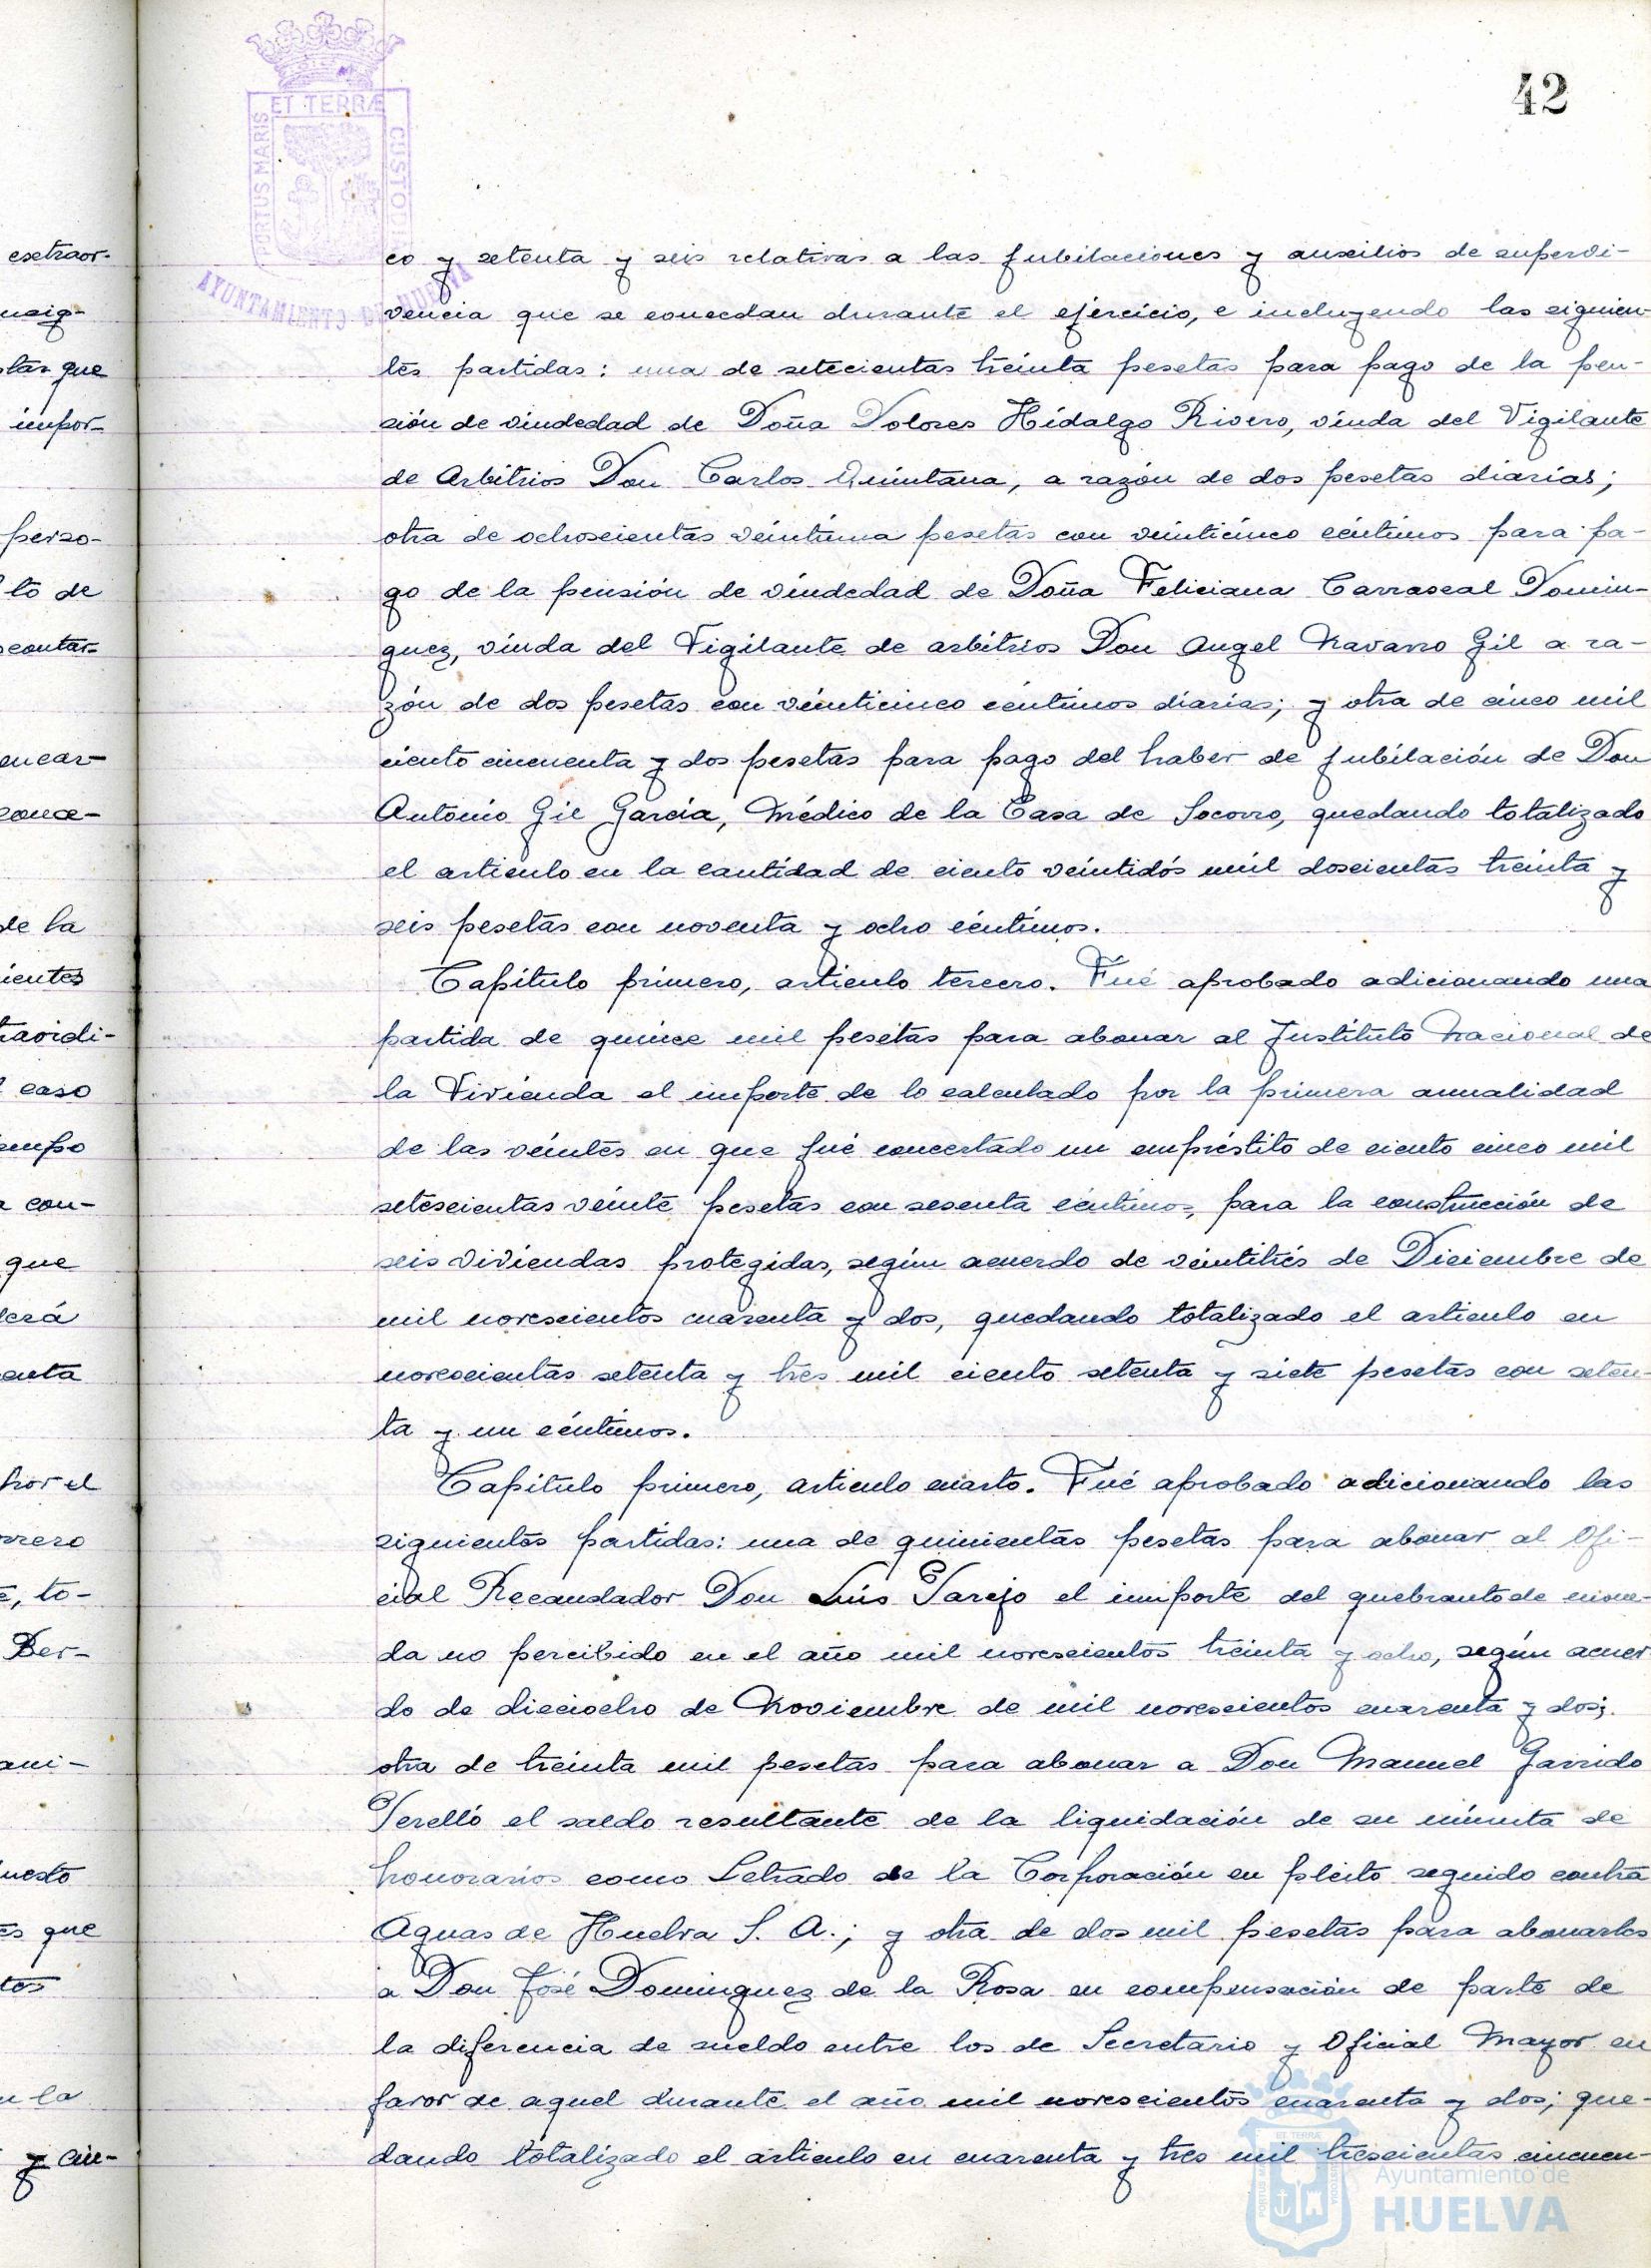 42
PORTUS MARIS ET TERRÆ CUSTODIA
AYUNTAMIENTO DE HUELVA
co y setenta y seis relativas a las jubilaciones y auxilios de supervi-
vencia que se concedan durante el ejercicio, e incluyendo las siguien-
tes partidas: una de setecientas treinta pesetas para pago de la pen-
sión de viudedad de Doña Dolores Hidalgo Rivero, viuda del Vigilante
de Arbitrios Don Carlos Quintana, a razón de dos pesetas diarias;
otra de ochoscientas veintiuna pesetas con veinticinco céntimos para pa-
go de la pensión de viudedad de Doña Feliciana Carrascal Domin-
guez, viuda del Vigilante de arbitrios Don Angel Navarro Gil a ra-
zón de dos pesetas con veinticinco céntimos diarias; y otra de cinco mil
ciento cincuenta y dos pesetas para pago del haber de jubilación de Don
Antonio Gil García, Médico de la Casa de Socorro, quedando totalizado
el articulo en la cantidad de ciento veintidós mil doscientas treinta y
seis pesetas con noventa y ocho céntimos.
Capítulo primero, articulo tercero. Fué aprobado adicionando una
partida de quince mil pesetas para abonar al Instituto Nacional de
la Vivienda el importe de lo calculado por la primera anualidad
de las veintes en que fué concertado un empréstito de ciento cinco mil
setescientas veinte pesetas con sesenta céntimos, para la construcción de
seis viviendas protegidas, según acuerdo de veintitrés de Diciembre de
mil novescientos cuarenta y dos, quedando totalizado el articulo en
novescientas setenta y tres mil ciento setenta y siete pesetas con seten-
ta y un céntimos.
Capítulo primero, articulo cuarto. Fué aprobado adicionando las
siguientes partidas: una de quinientas pesetas para abonar al Ofi-
cial Recaudador Don Luis Tarejo el importe del quebranto de mone-
da no percibido en el año mil novescientos treinta y ocho, según acuer-
do de dieciocho de Noviembre de mil novescientos cuarenta y dos;
otra de treinta mil pesetas para abonar a Don Manuel Garrido
Perelló el saldo resultante de la liquidación de su minuta de
honorarios como Letrado de la Corporación en pleito seguido contra
Aguas de Huelva S. A.; y otra de dos mil pesetas para abonarlos
a Don José Dominguez de la Rosa en compensación de parte de
la diferencia de sueldo entre los de Secretario y Oficial Mayor en
favor de aquel durante el año mil novescientos cuarenta y dos; que-
dando totalizado el articulo en cuarenta y tres mil trescientas cincuen-
Ayuntamiento de
HUELVA